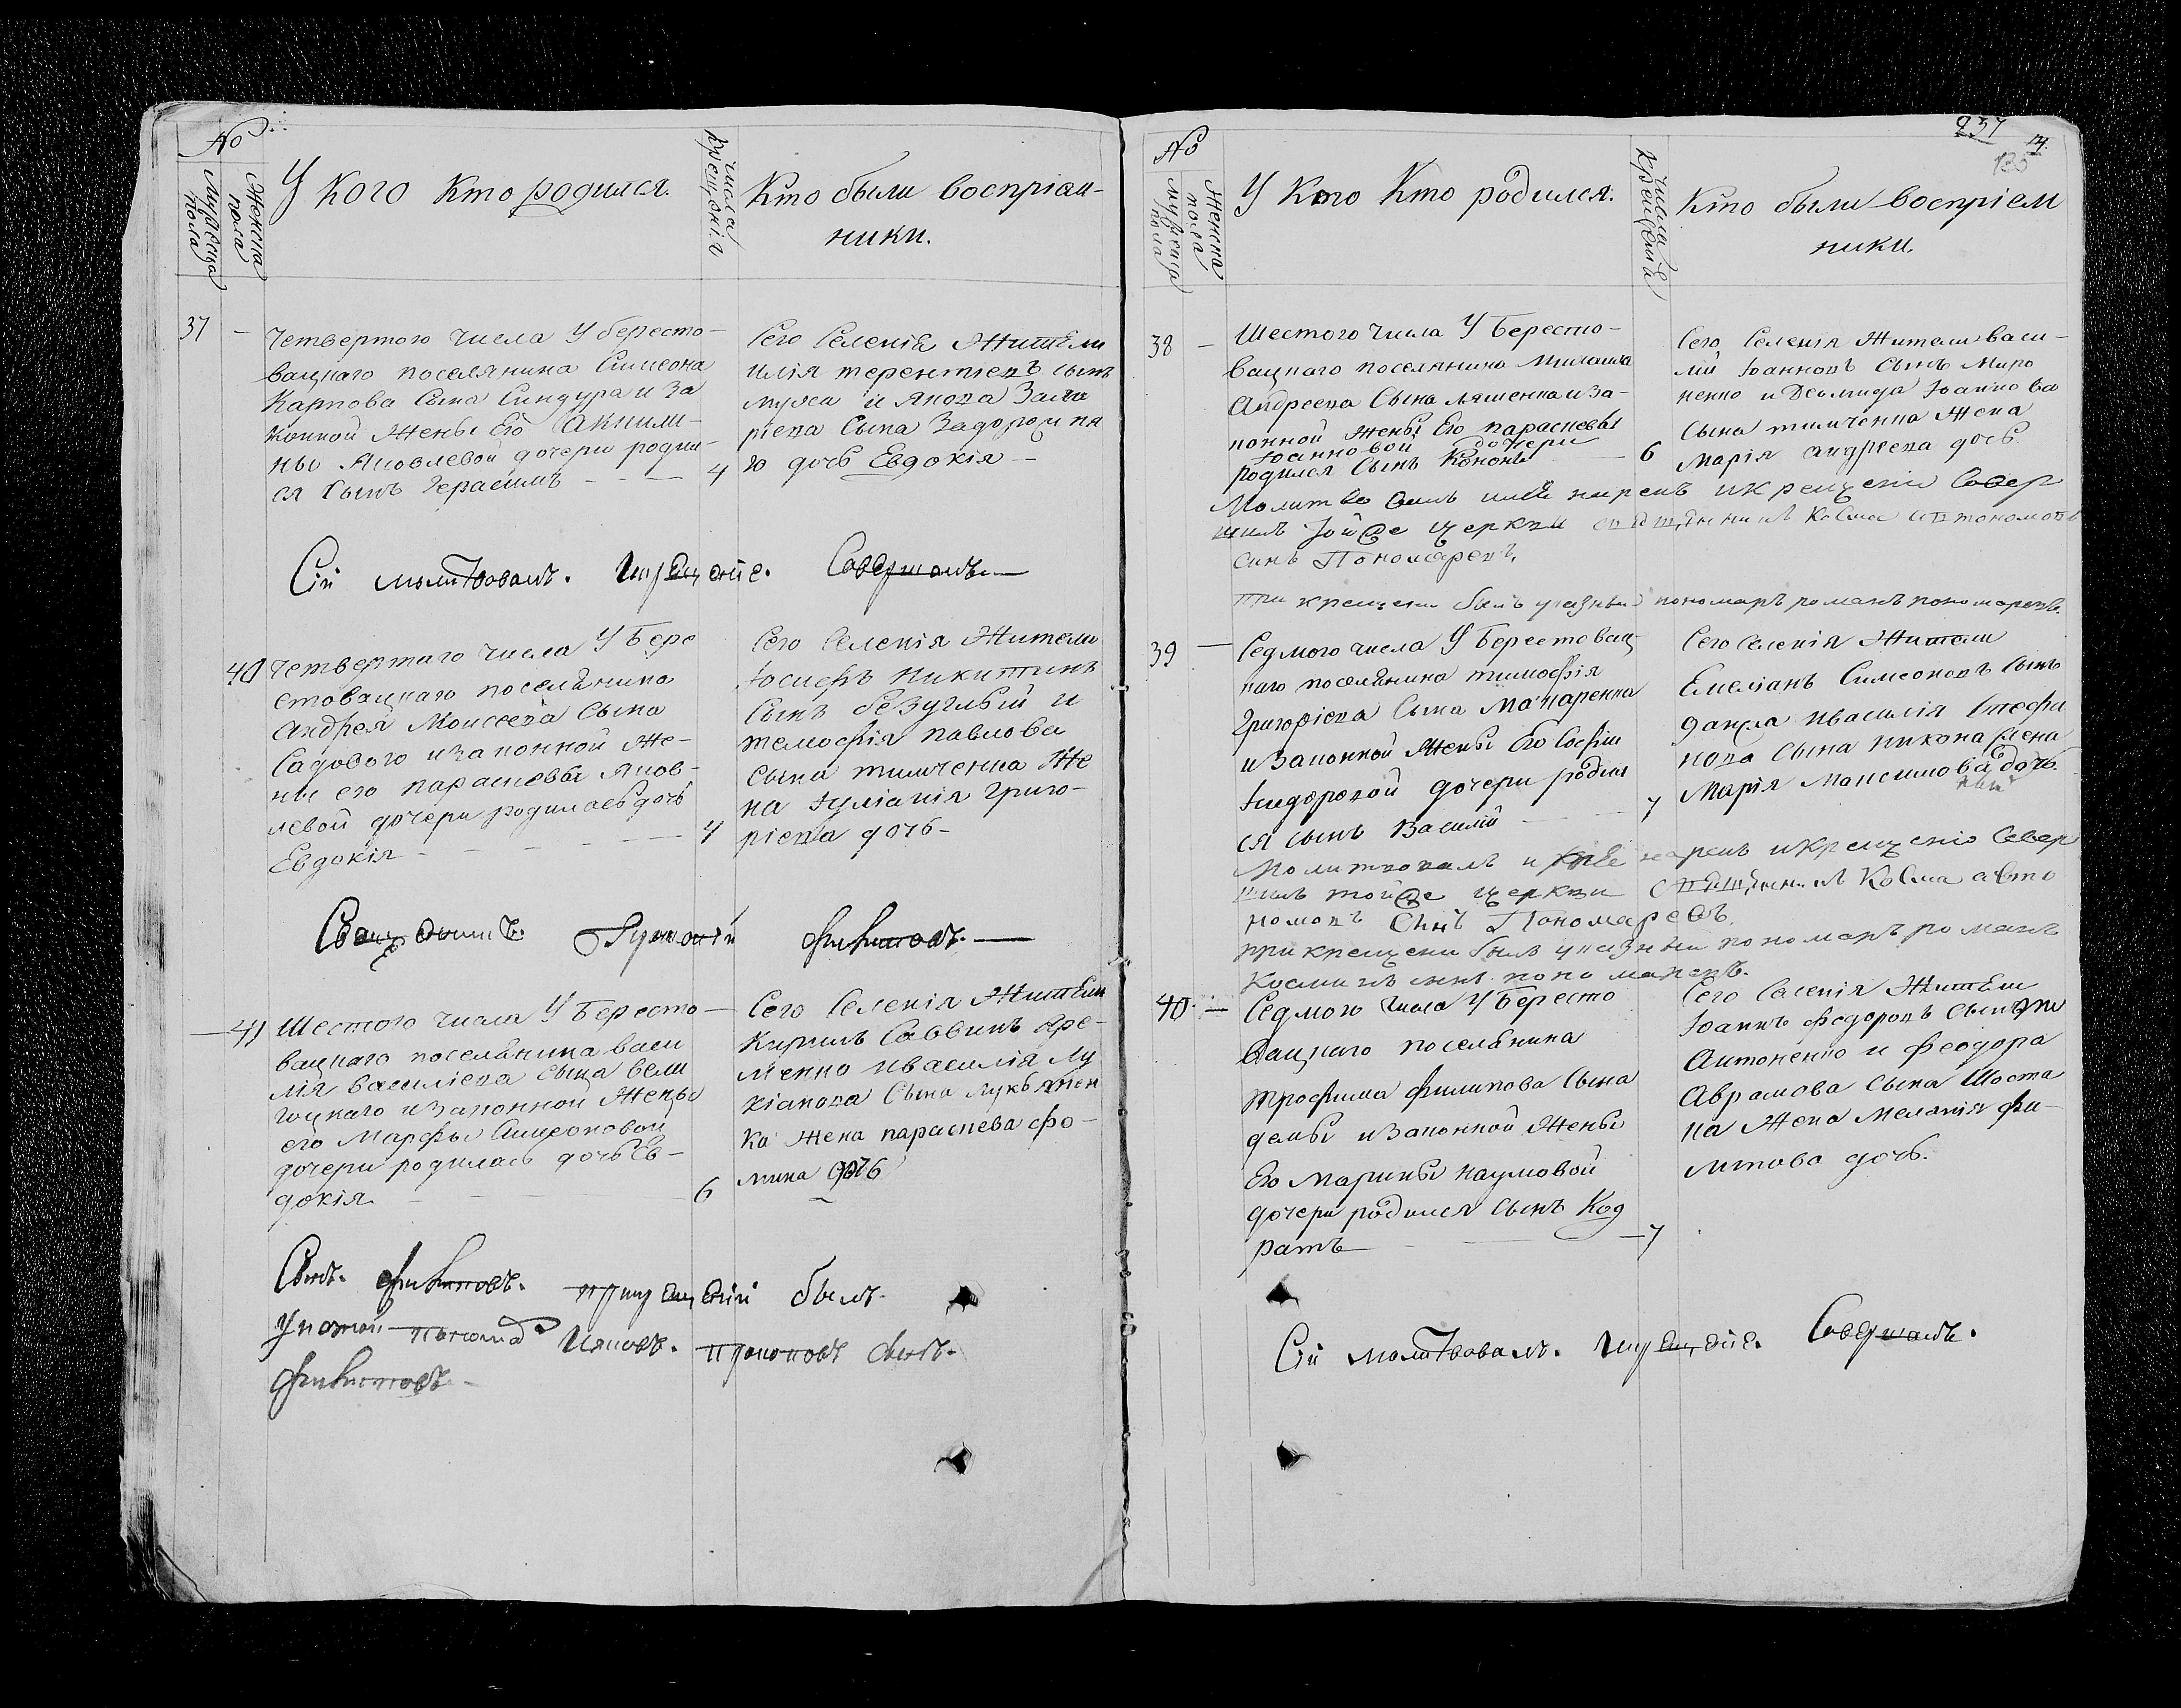 №
Мужеска пола
Женска пола
У кого кто родился.
Числа крещенія
Кто были воспріем-
ники.
37 —
Четвертого числа У бересто-
вацкаго поселянина Симеона
Карпова Сына Синдура и За
конной Жены Его Акили-
ны Яковлевой дочери родил-
ся Сынъ Герасимъ — — — 4
Сего Селенія Жители
Илія терентіевъ сынъ
муха и Якова
ріева Сына Задорожня
го дочь Евдокія —
Сій молитвовалъ. Икрещеніе. Совершалъ. —
40 Четвертаго числа У Бере
стовацкаго поселянина
Андрея Моисеева Сына
Садового изаконной Же-
ны его параскевы Яков-
левой дочери родилась дочь
Евдокія — — — — — 4
Сего Селенія Жители
Іосифъ Никитинъ
Сынъ безуглый и
тимофія павлова
Сына тимченка Же
на Іуліанія Григо-
ріева дочь —
Священникъ филиповъ. —
— 41 Шестого числа У Бересто-
вацкаго поселянина васи
лія василіева сына вели
гоцкаго изаконной Жены
его Марфы Симеоновой
дочери родилась дочь Ев-
докія — — — 6
Сего Селенія Жители
Кирилъ Саввинъ Яре-
менко ивасилія Лу
кіанова Сына лукьянен
ка Жена параскева фо-
мина дочь
Свщ. филиповъ. прикрещеніи былъ
указной пономар Ияковъ. прокоповъ сынъ.
филиповъ. —
237
14.
135
№
Мужеска пола
Женска пола
У Кого Кто родился.
Числа Крещенія
Кто были воспріем
ники.
38 —
Шестого числа У Бересто-
вацкаго поселянина михаила
Андреева Сына ляшенка иза-
конной жены Его параскевы
Іоанновой дочери
родился Сынъ Кононъ — 6
Сего Селенія Жители васи-
лій Іоанновъ Сынъ Миро
ненко и Деомида Іоаннова
сына тимченка Жена
Марія андреева дочь
Молитвовалъ имя нарекъ икрещеніе Совер
шилъ тойже церкви священникъ Косма автономовъ
синъ Пономаревъ,
при крещени былъ указный пономаръ романъ пономаревъ.
39 —
Седмого числа У Берестовац-
каго поселянина тимофія
Григоріева Сына Макаренка
изаконной Жены Его Софіи
Ісидоровой дочери родил
ся сынъ Василій — — 7
Сего Селенія Жители
Емеліанъ Симеоновъ Сынъ
данса ивасилія Стефа
нова Сына никона Жена
Марія Максимова дочь.
Молитвовалъ и имя нарекъ икрещеніе Совер
шилъ тойже церкви священникъ Косма авто
номовъ Синъ Пономаревъ.
при крещени былъ указный пономаръ романъ
Косминъ синъ пономаревъ.
40. —
Седмого числа У Бересто
вацкаго поселянина
трофима филипова Сына
демы изаконной Жены
Его Марины наумовой
дочери родился Сынъ Код
ратъ — — — 7
Сего Селенія Жители
Іоаннъ Федоровъ Сынъ
Антоненко и феодора
Аврамова Сына Шоста
ка Жена Меланія фи-
липова дочь.
Сій молитвовалъ. Икрещеніе. Совершалъ.